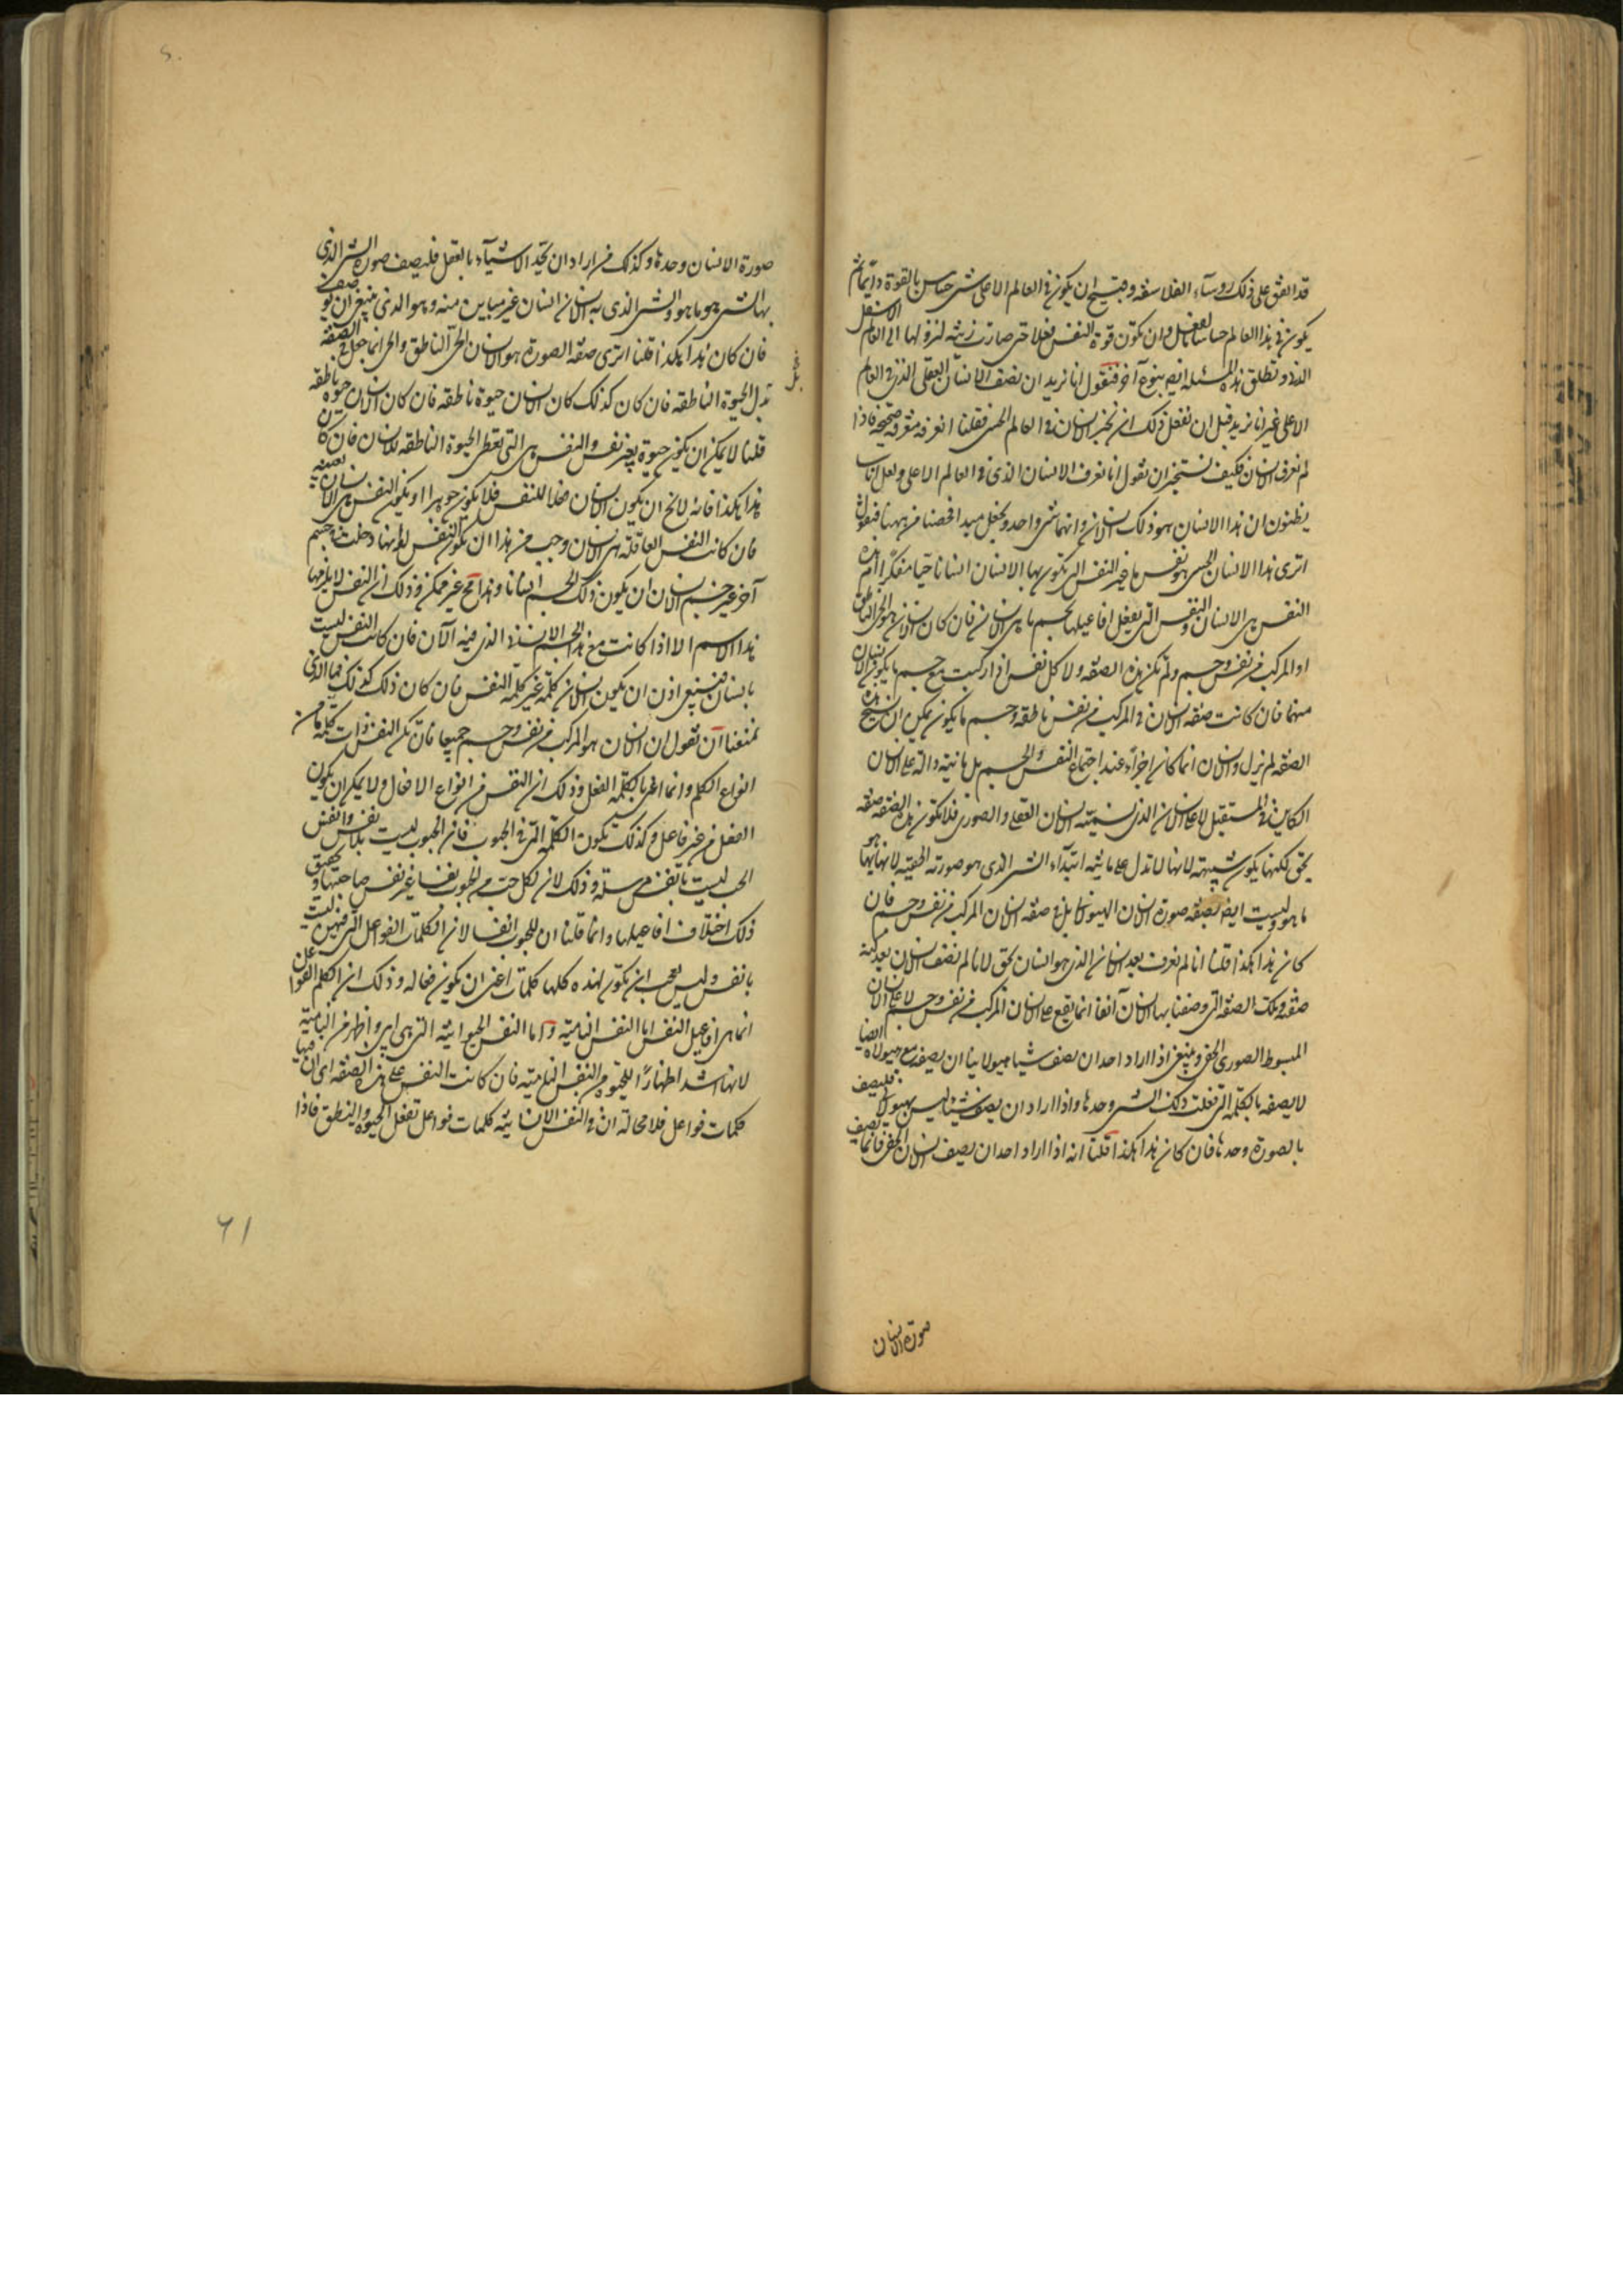 قد اتفق على ذلك روسآء الفلاسفة وقبيح ان يكون فى العالم الاعلى شئ حساس بالقوة دائما ثم
يكون فى هذا العالم حساسا بالفعل وان تكون قوة النفس فعلا حتى صارت دنيئة لنزولها الى العالم الاسفل
الدنى ونطلق هذه المسئلة ايضا بنوع آخر فنقول انا نريد ان نصف الانسان العقلى الذى فى العالم
الاعلى غير انا نريد قبل ان نفعل ذلك ان نخبر الانسان فى العالم الحسى فقلنا انعرفه معرفة صحيحة فاذا
لم نعرف الانسان فكيف نستجيز ان نقول انا نعرف الانسان الذى فى العالم الاعلى ولعل اناسا
يظنون ان هذا الانسان هو ذلك الانسان وانهما شئ واحد ونجعل مبدا فحصنا من ههنا فنقول
اترى هذا الانسان الحسى هو نفس ما غير النفس التى تكون بها الانسان انسانا حيا مفكرا ام هذه
النفس هى الانسان والنفس التى تفعل افاعيلها بجسم ما هى الانسان فان كان الانسان هو الحى الناطق
او المركب من نفس وجسم ولم تكن هذه الصفة ولا كل نفس اذا ركبت مع جسم ما يكون الانسان
منهما فان كانت صفة الانسان فى المركب من نفس ناطقة وجسم ما يكون يمكن ان نسخ هذه
الصفة لم يزل والانسان انما كان اجزاء عند اجتماع النفس والجسم بل هانية دالة على الانسان
الكاين فى المستقبل لا على الانسان الذى نسميه الانسان العقلى والصورى فلا تكون هذه الصفة صفة
بحق لكنها يكون شبيهة لانها لا تدل على مائية ابتدآء الشئ الذى هو صورته الحقية لانها بها هو
ما هو وليست ايضا بصفة صورة الانسان الهيولانى بل هى صفة الانسان المركب من نفس وجسم فان
كان هذا هكذا قلنا انا لم نعرف بعد الانسان الذى هو انسان بحق لانا لم نصف الانسان بعد كنه
صفته وتلك الصفة التى وصفنا بها الانسان آنفا انما يقع على الانسان المركب من نفس وجسم لا على الانسان
المبسوط الصورى الحق وينبغى اذا اراد احد ان يصف شيئا هيولانيا ان يصفه مع هيولاه ايضا
لا يصفه بالكلمة التى فعلت ذلك الشئ وحدها واذا اراد ان يصف شيئا ليس بهيولا نى فليصف
بالصورة وحدها فان كان هذا هكذا قلنا انه اذا اراد احد ان يصف الانسان الحق فانما يصف
صورة الانسان
صورة الانسان وحدها وكذلك من اراد ان يحد الاشيآء بالعقل فليصف صورة الشئ الذى
بها الشئ هو ما هو والشئ الذى به الانسان انسان غير مباين منه وهو الذى ينبغى ان يوصف
فان كان هذا هكذا قلنا اترى صفة الصورة هو الانسان الحى الناطق والحى انما جعل فى الصفة
بدل الحيوة الناطقة فان كان كذلك كان الانسان حيوة ناطقة فان كان الانسان حيوة ناطقة
قلنا لا يمكن ان يكون حيوة بغير نفس والنفس هى التى تعطى الحيوة الناطقة للانسان فان كان
هذا هكذا فانه لا يخ ان يكون الانسان فعلا للنفس فلا يكون جوهرا او يكون النفس هى الانسان بعينه
فان كانت النفس العاقلة هى الانسان وجب من هذا ان تكون النفس لو انها دخلت فى جسم
آخر غير جسم الانسان ان يكون ذلك الجسم انسانا وهذا مح غير ممكن وذلك ان النفس لا يلزمها
هذا الاسم الا اذا كانت مع هذا الجسم الانسانى الذى فيه الآن فان كانت النفس ليست
بانسان فينبغى اذن ان يكون الانسان كلمة غير كلمة النفس فان كان ذلك كذلك فما الذى
يمنعنا ان نقول ان الانسان هو المركب من نفس وجسم جميعا فان تكن النفس ذات كلمة ما من
انواع الكلم وانما اعنى بالكلمة الفعل وذلك ان النفس من انواع الافعال ولا يمكن ان يكون
الفعل من غير فاعل وكذلك تكون الكلمة التى فى الحبوب فان الحبوب ليست بلا نفس وانفس
الحب ليست بانفس مرسلة وذلك لان لكل حب من الحبوب نفسا غير نفس صاحبتها وتحقيق
ذلك اختلاف افاعيلها وانما قلنا ان للحبوب انفسا لان الكلمات الفواعل التى فيهن ليست
بانفس وليس بعجب ان تكون لهذه كلها كلمات اعنى ان يكون فعالة وذلك ان الكلم الفواعل
انما هى افاعيل النفس اما النفس النامية واما النفس الحيوانية التى هى ابين واظهر من النامية
لانها اشد اظهارا للحيوة من النفس النامية فان كانت النفس على هذه الصفة اى ان فيها
كلمات فواعل فلا محالة ان فى النفس الانسانية كلمات فواعل تفعل الحيوة والنطق فاذا
٦١